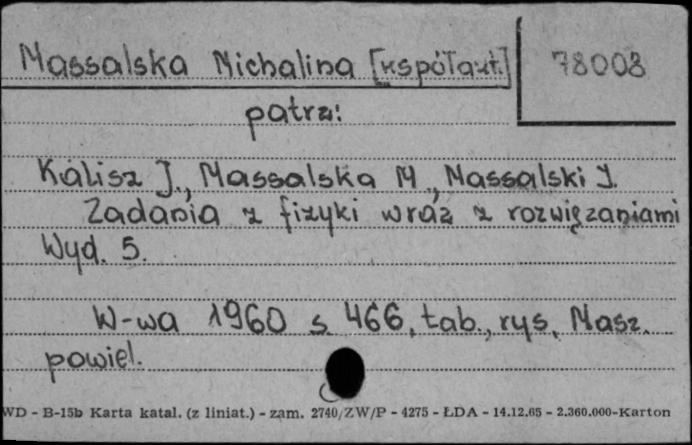 Massalska Michalina [współaut.] 78008
patrz:
Kalisz J., Massalska M., Massalski J.
Zadania z fizyki wraz z rozwięzaniami
Wyd. 5.
W-wa 1960 s 466, tab., rys, Masz.
powiel.
WD - B-15b Karta katal. (z liniat.) - zam. 2740/ZW/P - 4275 - ŁDA - 14.12.65 - 2.360.000-Karton